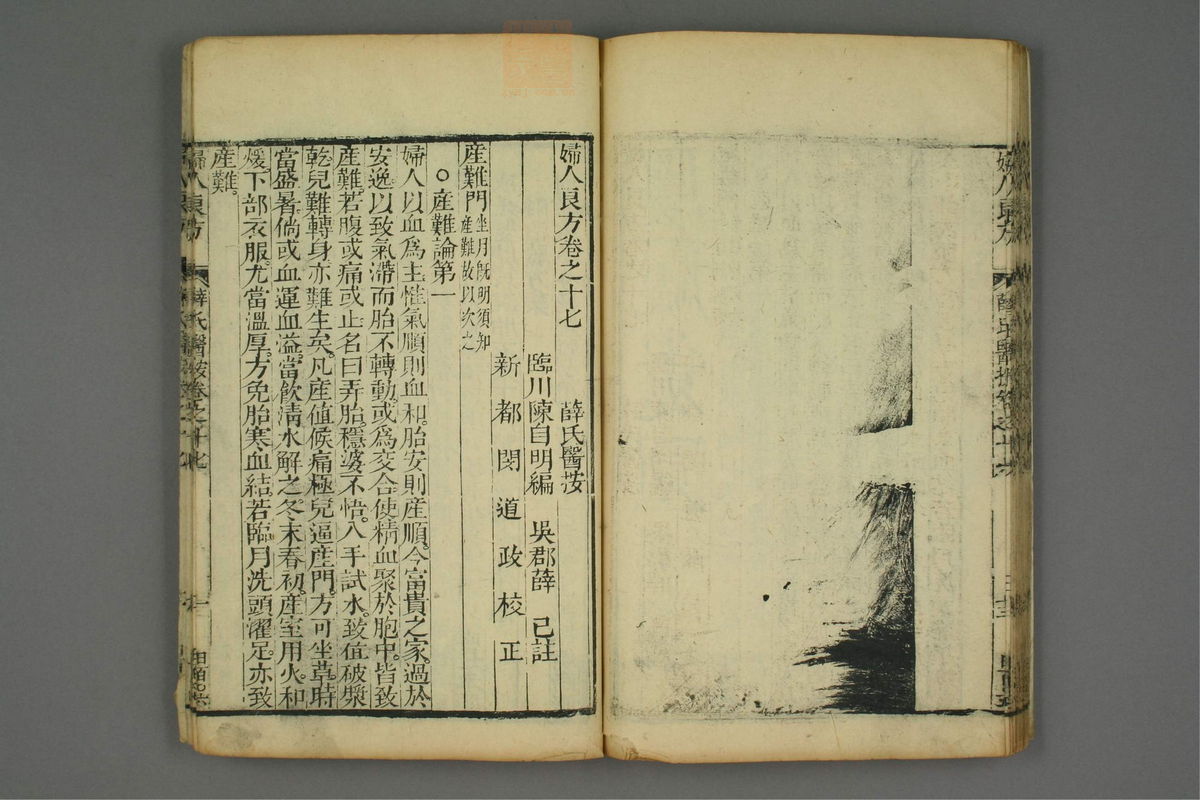 婦人良方卷之十七
薛氏醫按
臨川陳自明編　吳郡薛　己註
新都閔道政校正
産難門坐月旣明須知産難故以次之
○産難論第一
婦人以血爲主惟氣順則血和胎安則産順今富貴之家過於
安逸以致氣滯而胎不轉動或爲交合使精血聚於胞中皆致
産難若腹或痛或止名曰弄胎穩婆不悟入手試水致値破漿
乾兒難轉身亦難生矣凡産値候痛極兒逼産門方可坐草時
當盛暑倘或血運血溢當飮淸水解之冬末春初産室用火和
煖下部衣服尤當溫厚方免胎寒血結若臨月洗頭濯足亦致
産難
婦人良方
薛氏醫按卷之十七
一
婦人良方
薛氏醫按卷之十六